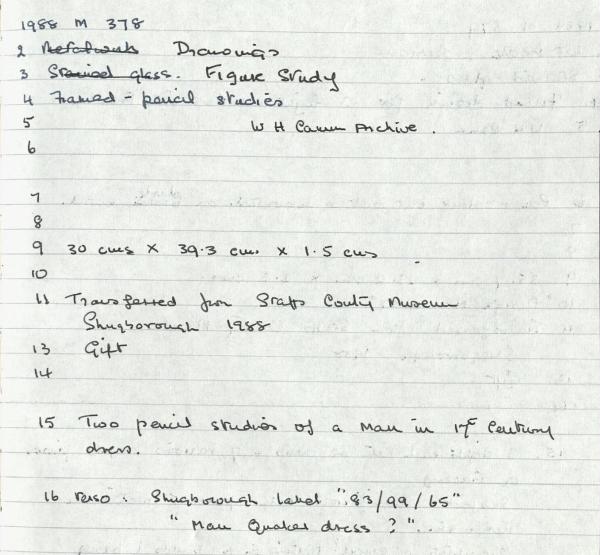 1988 M 378
2 Metalwork Drawings
3 Stained glass. Figure Study
4 Framed - pencil studies
5 W H Camm Archive.
6
7
8
9 30 cms x 39.3 cms x 1.5 cms
10
11 Transferred from Staffs County Museum
Shugborough 1988
13 Gift
14
15 Two pencil studies of a man in 17c Century
dress.
16 verso: Shugborough label "83/99/65"
" Man Quaker dress ? ".